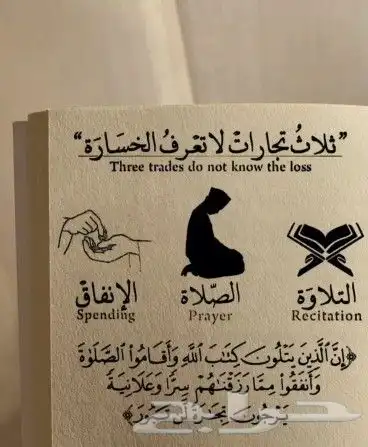 ”ثلاثُ تجاراتْ لا تعْرفُ الخسَارَة“
Three trades do not know the loss
التلاوَة
Recitation
الصّلاة
Prayer
الإنفاقْ
Spending
﴿إِنَّ الَّذِينَ يَتْلُونَ كِتَابَ اللَّهِ وَأَقَامُوا الصَّلَوٰةَ
وَأَنفَقُوا مِمَّا رَزَقْنَاهُمْ سِرًّا وَعَلَانِيَةً
يَرْجُونَ تِجَارَةً لَّن تَبُورَ﴾
حراج